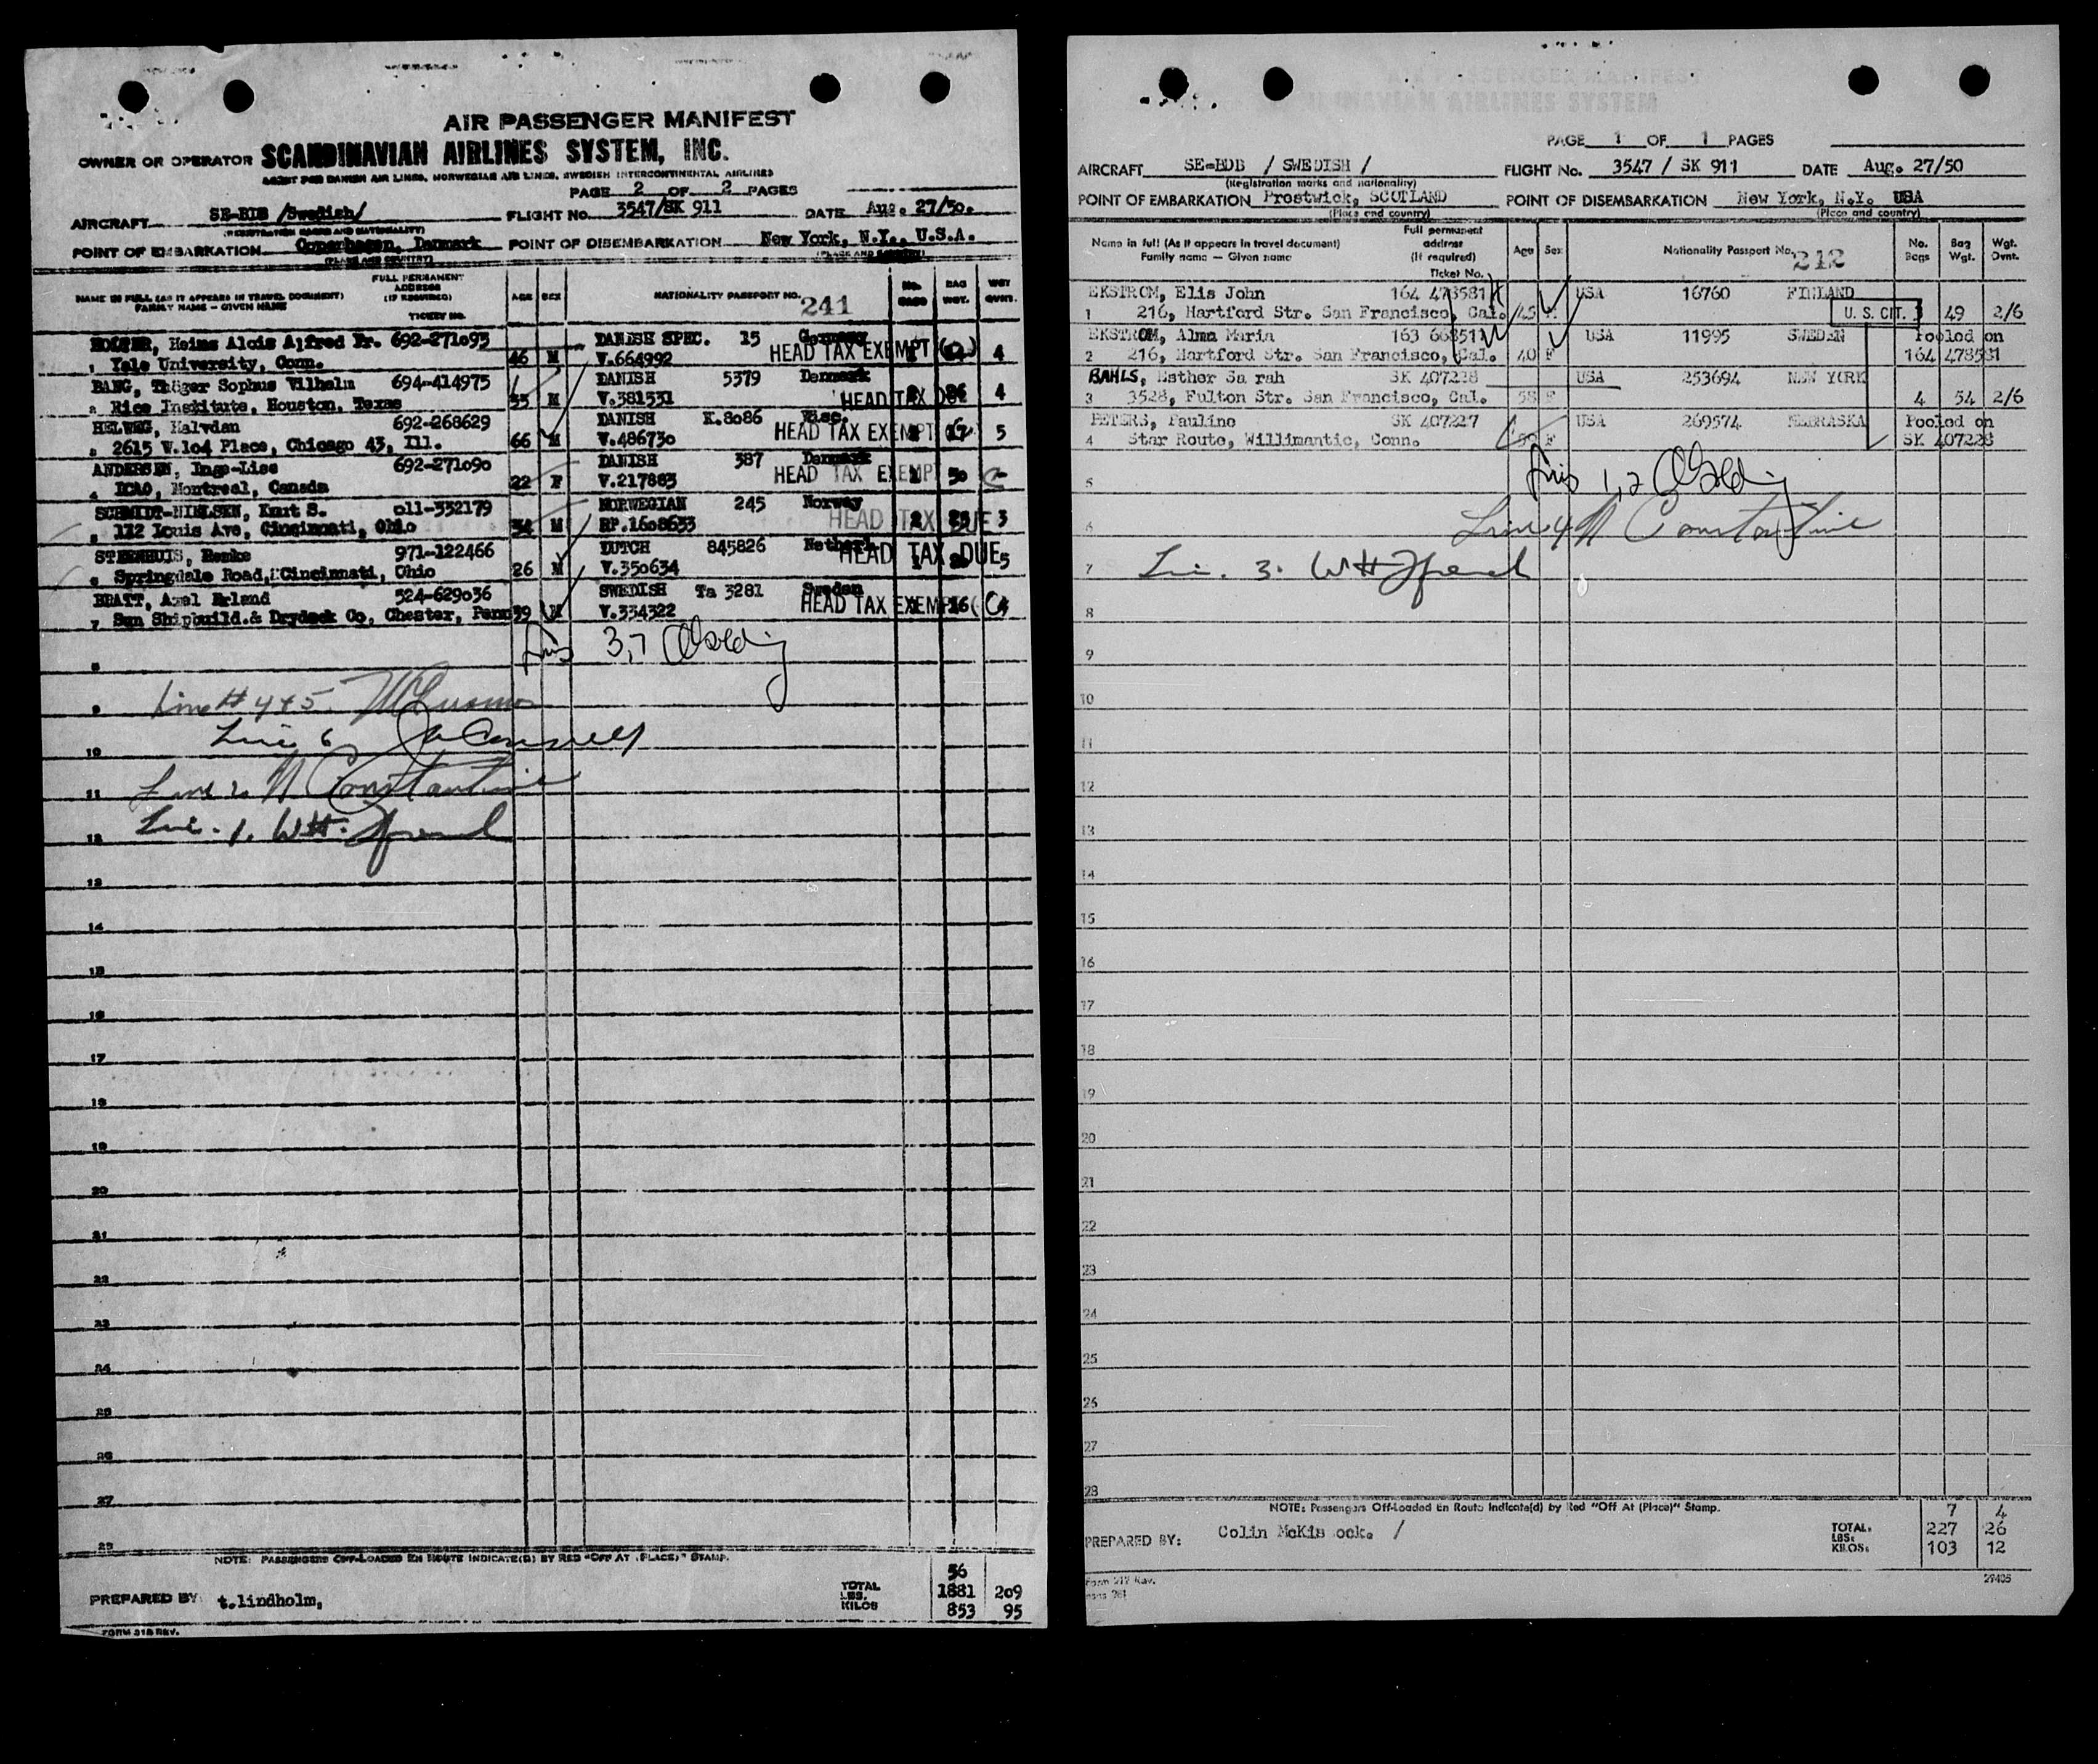 AIR PASSENGER MANIFEST
OWNER OR OPERATOR SCANDINAVIAN AIRLINES SYSTEM, INC.
AGENT FOR DANISH AIR LINES, NORWEGIAN AIR LINES, SWEDISH INTERCONTINENTAL AIRLINES
PAGE 2 OF 2 PAGES
AIRCRAFT SE-BDB /Swedish/ FLIGHT NO. 3547/SK 911 DATE Aug. 27/50.
(REGISTRATION MARKS AND NATIONALITY)
POINT OF EMBARKATION Copenhagen, Denmark POINT OF DISEMBARKATION New York, N.Y., U.S.A.
(PLACE AND COUNTRY) (PLACE AND COUNTRY)
NAME IN FULL (AS IT APPEARS IN TRAVEL DOCUMENT) FAMILY NAME – GIVEN NAME FULL PERMANENT ADDRESS (IF REQUIRED) TICKET NO. AGE SEX NATIONALITY PASSPORT NO. 241 NO. BAGS BAG WGT. WGT OVWT.
Heims Alois Alfred Fr. 692-271095 DANISH SPEC. 15 Germany
1 Yale University, Conn. 46 M V.664992 HEAD TAX EXEMPT 4
BANG, Thöger Sophus Vilhelm 694-414975 DANISH 5379 Denmark
2 Rice Institute, Houston, Texas 55 M V.381531 HEAD TAX 4
HELWEG, Halvdan 692-268629 DANISH K.8086 Wisc.
3 2615 W.104 Place, Chicago 43, Ill. 66 M V.486730 HEAD TAX EXEMPT 17 5
ANDERSEN, Inge-Lise 692-271090 DANISH 387 Denmark
4 ICAO, Montreal, Canada 22 F V.217883 HEAD TAX EXEMPT 30
SCHMIDT-NIELSEN, Knut S. 011-332179 NORWEGIAN 245 Norway
5 112 Louis Ave, Cincinnati, Ohio M RP.1608633 HEAD TAX DUE 3
STEENHUIS, Remke 971-122466 DUTCH 845826 Netherl
6 Springdale Road, Cincinnati, Ohio 26 M V.350634 HEAD TAX DUE 5
BRATT, Axel Erland 524-629036 SWEDISH Ta 3281 Sweden
7 Sun Shipbuild.& Drydock Co, Chester, Penn 39 M V.334322 HEAD TAX EXEMPT 16 4
3,7
8
9 Line # 4+5
10 Line 6
11 Line 2 N Constantine
12 Lin. 1. WH. French
13
14
15
16
17
18
19
20
21
22
23
24
25
26
27
28
NOTE: PASSENGERS OFF-LOADED EN ROUTE INDICATE(D) BY RED "OFF AT (PLACE)" STAMP.
56
PREPARED BY: t.lindholm, TOTAL LBS. 1881 209
KILOS 853 95
FORM 318 REV.
AIR PASSENGER MANIFEST
SCANDINAVIAN AIRLINES SYSTEM
PAGE 1 OF 1 PAGES
AIRCRAFT SE-BDB / SWEDISH / FLIGHT No. 3547 / SK 911 DATE Aug. 27/50
(Registration marks and nationality)
POINT OF EMBARKATION Prestwick, SCOTLAND POINT OF DISEMBARKATION New York, N.Y. USA
(Place and country) (Place and country)
Name in full (As it appears in travel document) Family name – Given name Full permanent address (If required) Ticket No. Age Sex Nationality Passport No. 242 No. Bags Bag Wgt. Wgt. Ovnt.
EKSTROM, Elis John 164 478581 USA 16760 FINLAND
1 216, Hartford Str. San Francisco, Cal. 45 M U. S. CIT. 3 49 2/6
EKSTROM, Alma Maria 163 668511 USA 11995 SWEDEN Pooled on
2 216, Hartford Str. San Francisco, Cal. 40 F 164 478581
BAHLS, Esther Sa rah SK 407228 USA 253694 NEW YORK
3 3528, Fulton Str. San Francisco, Cal. 58 F 4 54 2/6
PETERS, Pauline SK 407227 USA 269574 NEBRASKA Pooled on
4 Star Route, Willimantic, Conn. F SK 407228
5 1,2
6 Line 4 N Constantine
7 Lin. 3. WH French
8
9
10
11
12
13
14
15
16
17
18
19
20
21
22
23
24
25
26
27
28
NOTE: Passengers Off-Loaded En Route Indicate(d) by Red "Off At (Place)" Stamp.
7 4
PREPARED BY: Colin McKis ock. / TOTAL. LBS: 227 26
KILOS: 103 12
Form 318 Rev. 29405